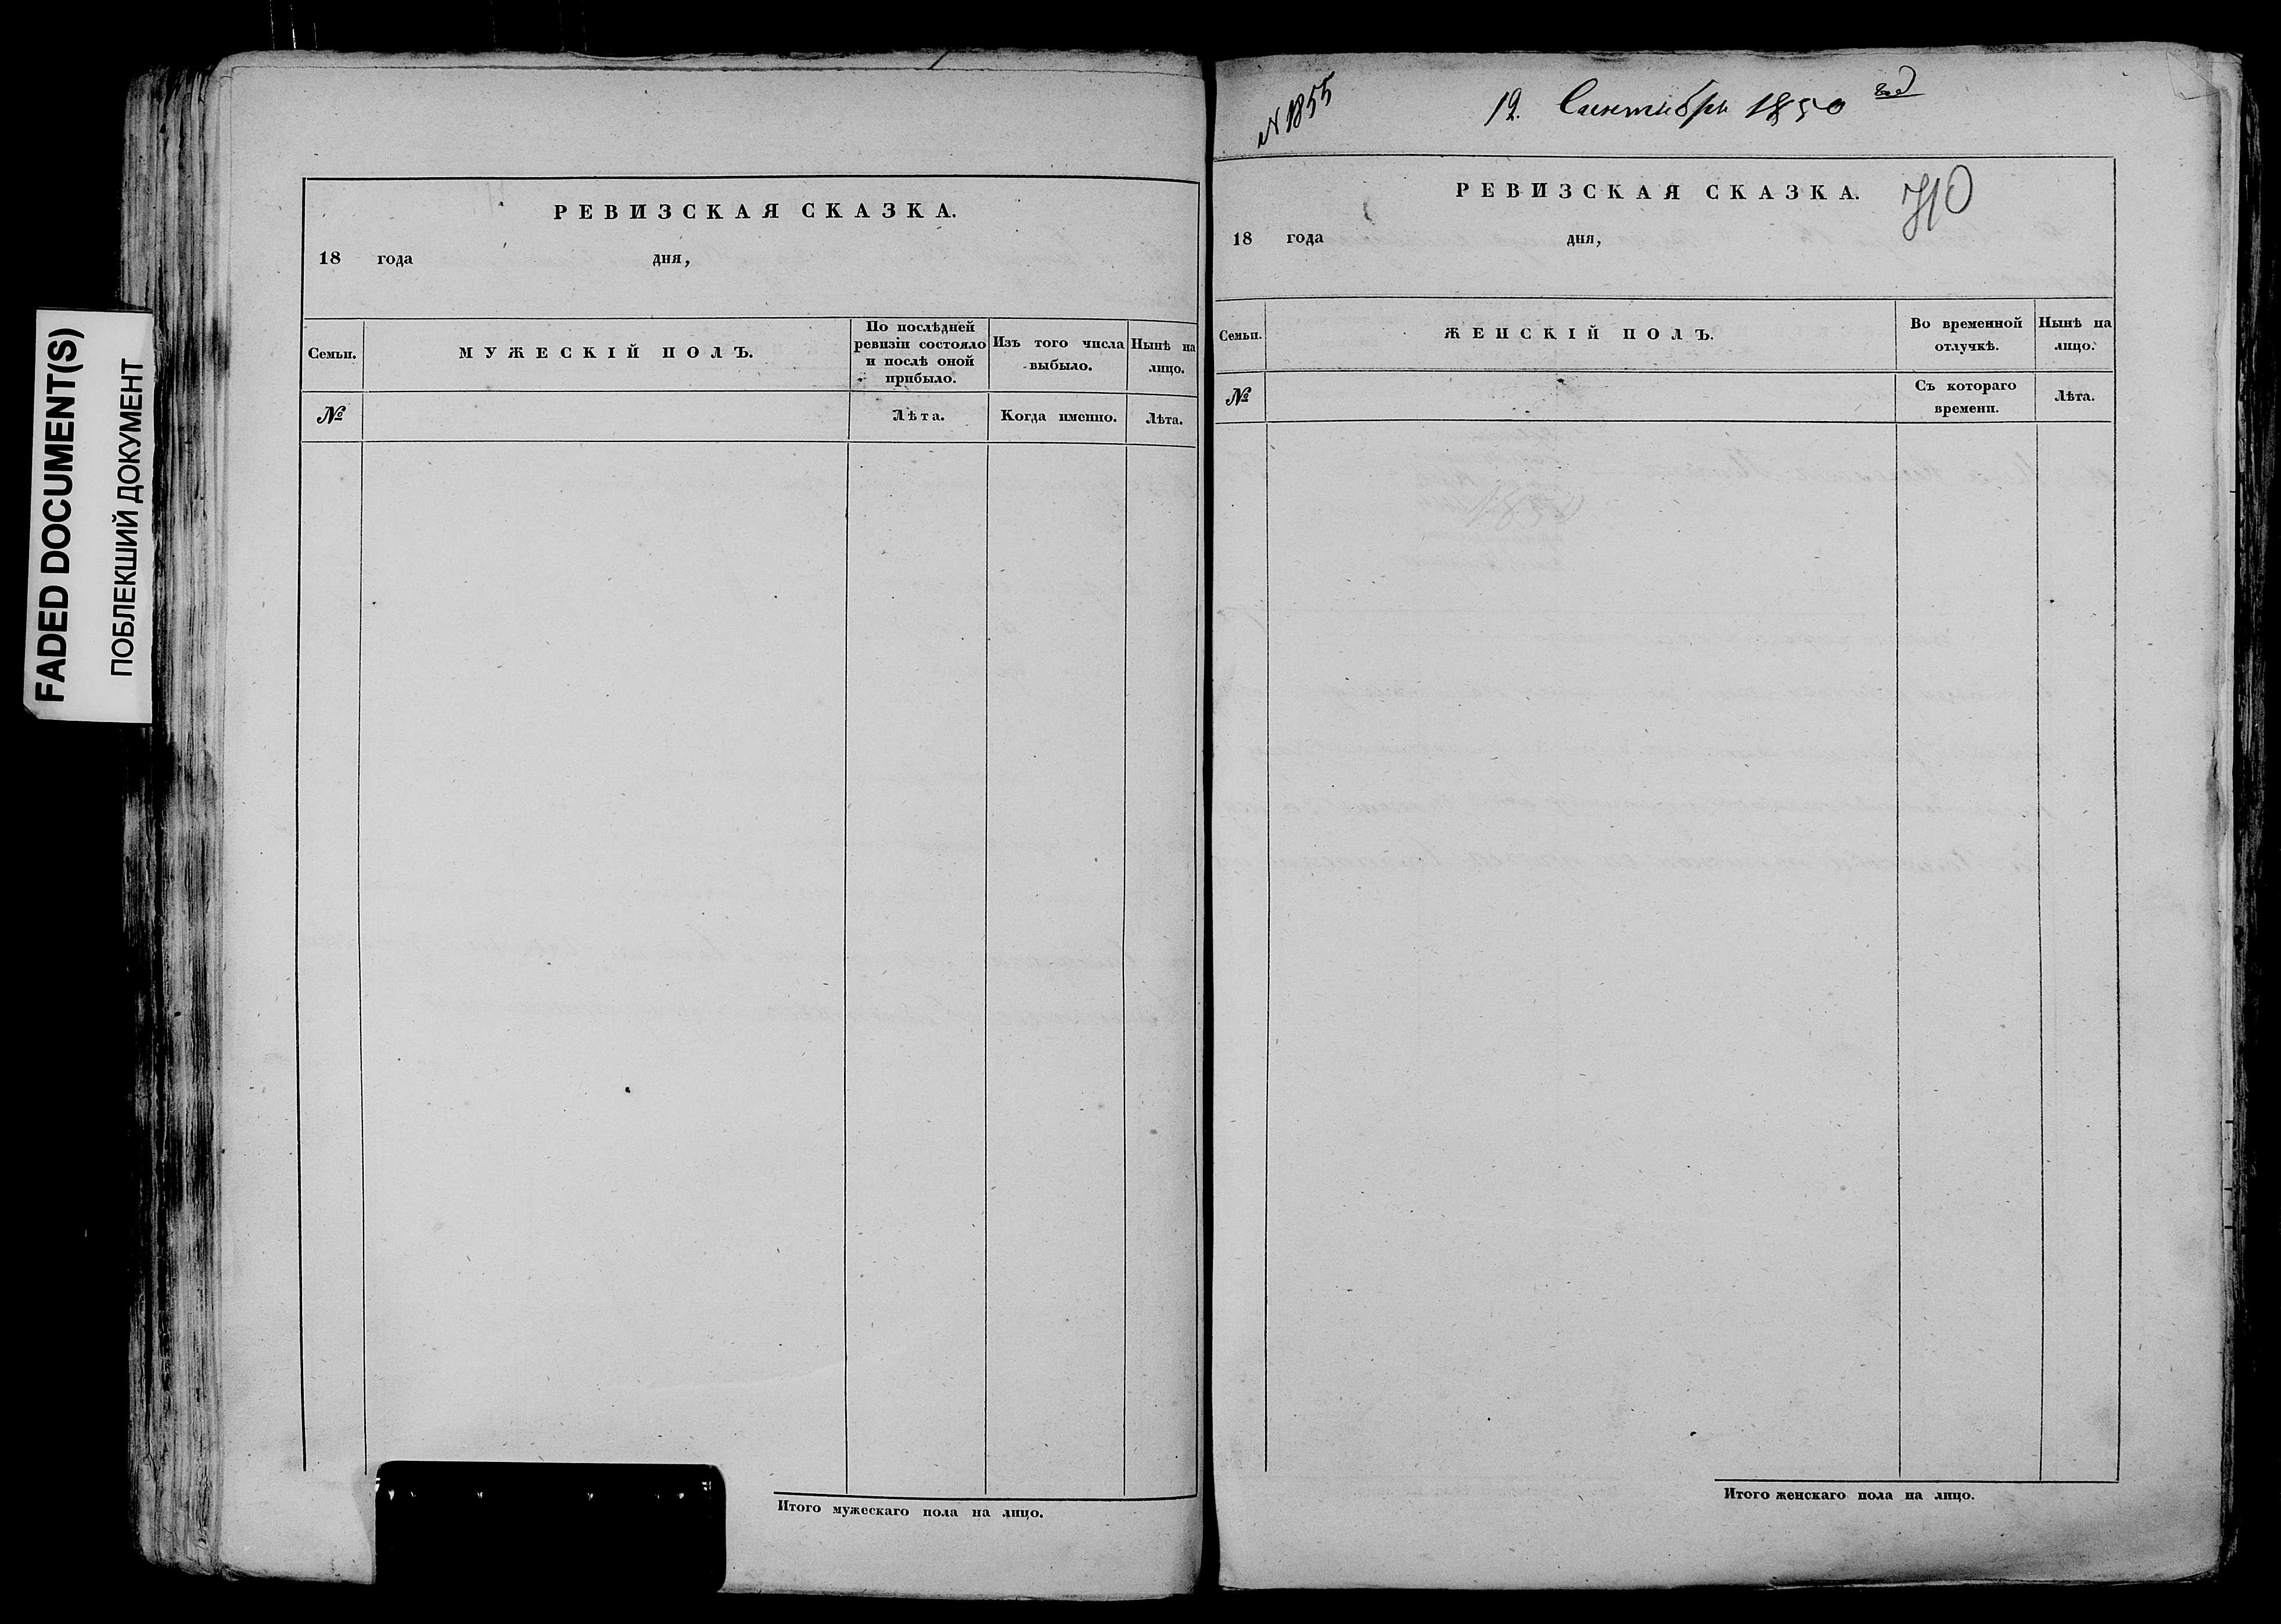 FADED DOCUMENT(S)
ПОБЛЕКШИЙ ДОКУМЕНТ
РЕВИЗСКАЯ СКАЗКА.
18 года дня,
Семьи.
МУЖЕСКІЙ ПОЛЪ.
По послѣдней
ревизіи состояло
и послѣ оной
прибыло.
Изъ того числа
выбыло.
Нынѣ на
лицо.
№
Лѣта.
Когда именно.
Лѣта.
Итого мужескаго пола на лицо.
N 1855
19. Сентября 1850 год
РЕВИЗСКАЯ СКАЗКА.
710
18 года дня,
Семьи.
ЖЕНСКІЙ ПОЛЪ.
Во временной
отлучкѣ.
Нынѣ на
лицо.
№
Съ котораго
времени.
Лѣта.
Итого женскаго пола на лицо.